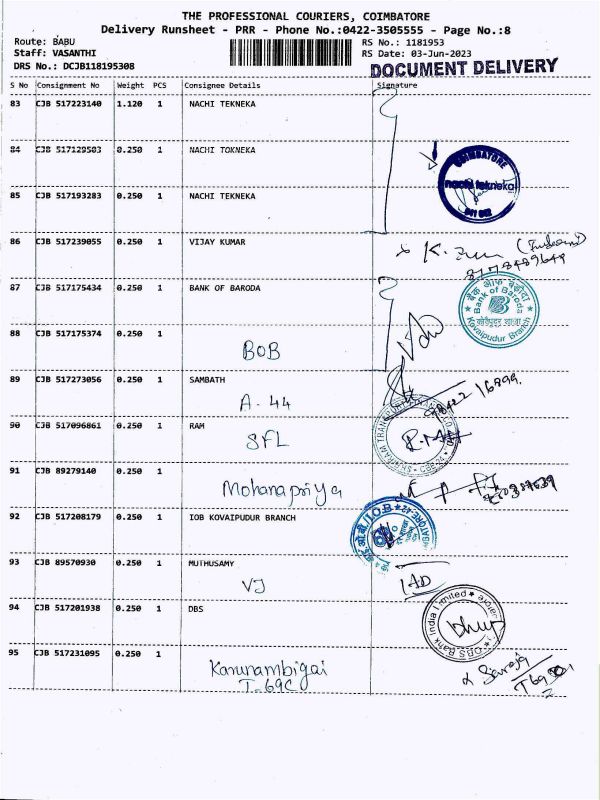 THE PROFESSIONAL COURIERS, COIMBATORE
Delivery Runsheet - PRR - Phone No.:0422-3505555 - Page No.:8
Route: BABU RS No.: 1181953
Staff: VASANTHI RS Date: 03-Jun-2023
DRS No.: DCJB118195308 DOCUMENT DELIVERY
S No Consignment No Weight PCS Consignee Details Signature
83 CJB 517223140 1.120 1 NACHI TEKNEKA
84 CJB 517129503 0.250 1 NACHI TOKNEKA
COIMBATORE
nachi tekneka
85 CJB 517193283 0.250 1 NACHI TEKNEKA
86 CJB 517239055 0.250 1 VIJAY KUMAR
87 CJB 517175434 0.250 1 BANK OF BARODA
बैंक ऑफ़ बड़ौदा
Bank of Baroda
Kovaipudur Branch
88 CJB 517175374 0.250 1
BOB
89 CJB 517273056 0.250 1 SAMBATH
A-44
98422 16899.
90 CJB 517096861 0.250 1 RAM
SFL
91 CJB 89279140 0.250 1
Mohanapriya
92 CJB 517208179 0.250 1 IOB KOVAIPUDUR BRANCH
93 CJB 89570930 0.250 1 MUTHUSAMY
VJ
94 CJB 517201938 0.250 1 DBS
DBS Bank India Limited
95 CJB 517231095 0.250 1
Karunambigai
T-69C